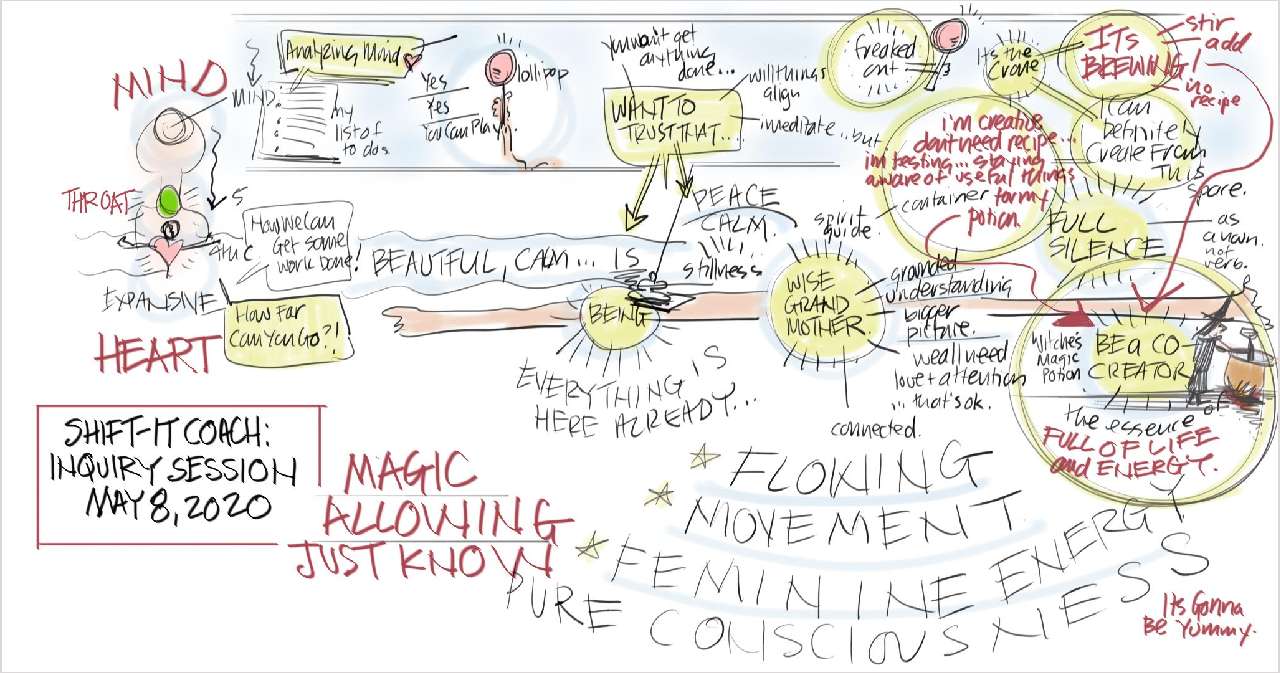 MIND
MIND
THROAT
EXPANSIVE
HEART
Analyzing Mind
my
list of
to dos
Yes
Yes
You Can Play
lollipop
How We Can
Get Some
work Done!
How Far
Can You Go?!
You won't get
anything
done...
WANT TO
TRUST THAT...
will things
align
meditate.. but
BEAUTIFUL, CALM... IS
PEACE
CALM.
stillness
BEING
EVERYTHING IS
HERE ALREADY...
spirit
guide.
WISE
GRAND
MOTHER.
grounded
understanding
bigger
picture.
we all need
love + attention
... that's ok.
connected.
freaked
out
It's the
Crone
ITS
BREWING!
stir
add
no
recipe
i'm creative
don't need recipe...
i'm testing... staying
aware of useful things
container for my
potion.
I can
Definitely
Create From
This
space.
FULL
SILENCE
as
a noun.
not
verb.
Witche's
Magic
Potion
BE a CO
CREATOR
the essence of
FULL OF LIFE
and ENERGY.
SHIFT-IT COACH:
INQUIRY SESSION
MAY 8, 2020
MAGIC
ALLOWING
JUST KNOWN
FLOWING
MOVEMENT
FEMININE ENERGY
PURE CONSCIOUSNESS
Its Gonna
Be Yummy.